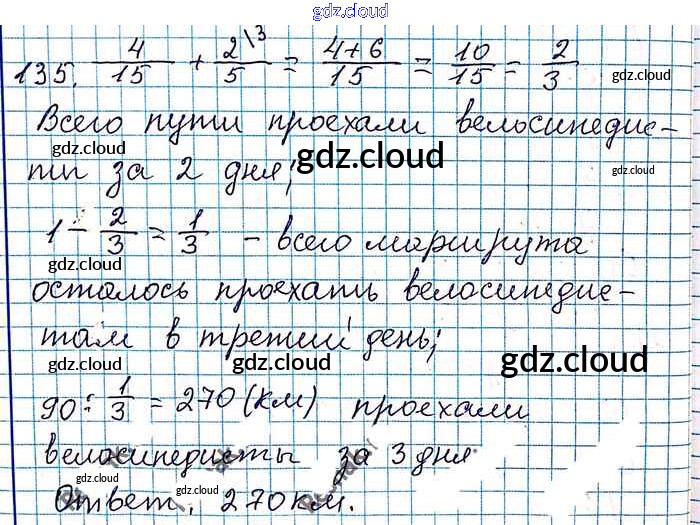 gdz.cloud
135. 4/15 + 2\3/5 = 4+6/15 = 10/15 = 2/3 gdz.cloud
Всего пути проехали велосипедис-
gdz.cloud gdz.cloud
ты за 2 дня; gdz.cloud
1 - 2/3 = 1/3 - всего маршрута
gdz.cloud
осталось проехать велосипедис-
там в третий день;
gdz.cloud gdz.cloud
90 : 1/3 = 270 (км) проехали
велосипедисты за 3 дня
gdz.cloud gdz.cloud
Ответ: 270 км.